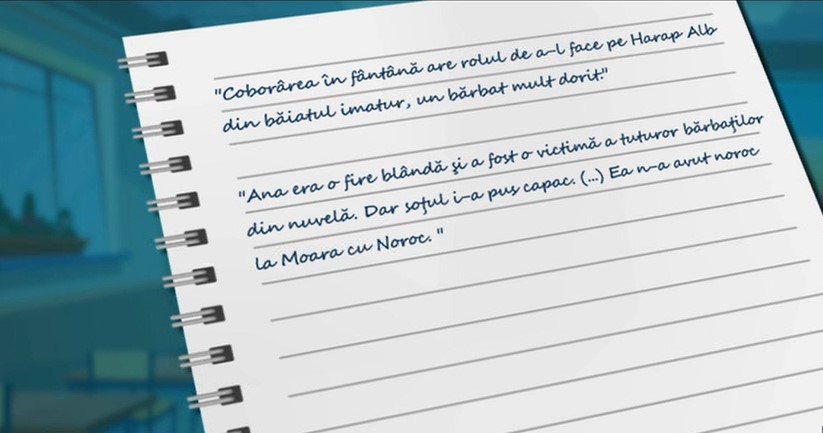 "Coborârea în fântână are rolul de a-l face pe Harap Alb
din băiatul imatur, un bărbat mult dorit."
"Ana era o fire blândă şi a fost o victimă a tuturor bărbaţilor
din nuvelă. Dar soţul i-a pus capac. (...) Ea n-a avut noroc
la Moara cu Noroc. "